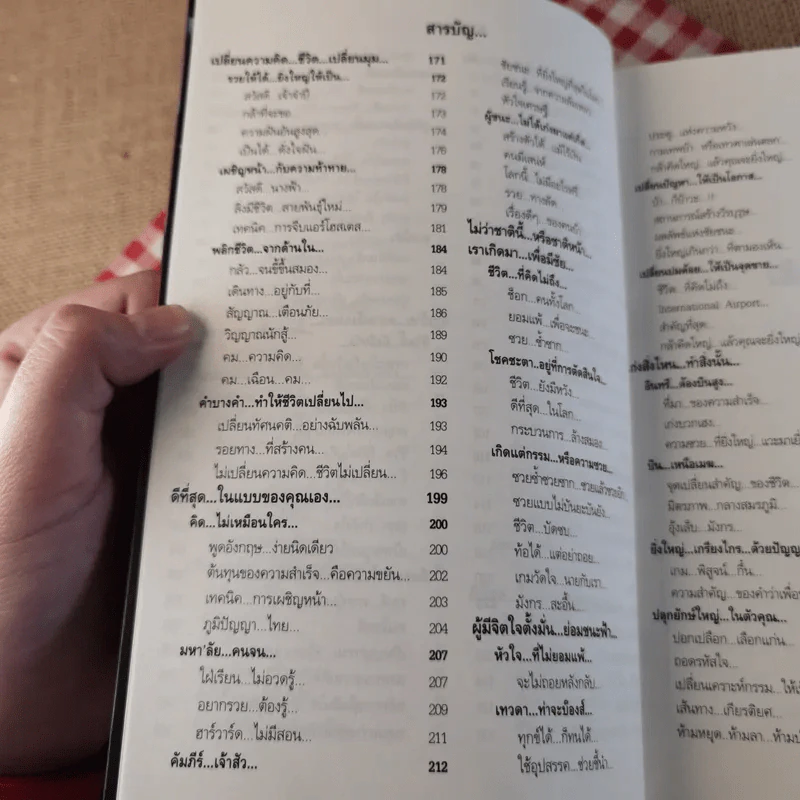 สารบัญ...
เปลี่ยนความคิด...ชีวิต...เปลี่ยนมุม... 171
รวยให้ได้...ยิ่งใหญ่ให้เป็น... 172
สวัสดี เจ้าจำปี 172
กล้าที่จะขอ 173
ความฝันอันสูงสุด 174
เป็นได้...ดังใจฝัน... 176
เผชิญหน้า...กับความท้าทาย... 178
สวัสดี...นางฟ้า... 178
ลิงมีชีวิต...สายพันธุ์ใหม่... 179
เทคนิค...การจีบแอร์โฮสเตส... 181
พลิกชีวิต...จากด้านใน... 184
กลัว...จนขี้ขึ้นสมอง... 184
เดินทาง...อยู่กับที่... 185
สัญญาณ...เตือนภัย... 186
วิญญาณนักสู้... 189
คม...ความคิด... 190
คม...เฉือน...คม... 192
คำบางคำ...ทำให้ชีวิตเปลี่ยนไป... 193
เปลี่ยนทัศนคติ...อย่างฉับพลัน... 193
รอยทาง...ที่สร้างคน... 194
ไม่เปลี่ยนความคิด...ชีวิตไม่เปลี่ยน... 196
ดีที่สุด...ในแบบของคุณเอง... 199
คิด...ไม่เหมือนใคร... 200
พูดอังกฤษ...ง่ายนิดเดียว 200
ต้นทุนของความสำเร็จ...คือความขยัน... 202
เทคนิค...การเผชิญหน้า... 203
ภูมิปัญญา...ไทย... 204
มหา'ลัย...คนจน... 207
ใฝ่เรียน...ไม่อวดรู้... 207
อยากรวย...ต้องรู้... 209
ฮาร์วาร์ด...ไม่มีสอน... 211
คัมภีร์...เจ้าสัว... 212
ชัยชนะ ที่ยิ่งใหญ่ที่สุดในโลก
เรียนรู้ จากความผิดพลาด
หัวใจเศรษฐี
ผู้ชนะ...ไม่ได้เก่งมาแต่เกิด...
สร้างตัวได้ แม้ไร้เงิน
คนมีเสน่ห์
โลกนี้...ไม่มีอะไรฟรี
รวย...ทางลัด
เรื่องดีๆ...ของคนบ้า
ไม่ว่าชาตินี้...หรือชาติหน้า...
เราเกิดมา...เพื่อมีชัย...
ชีวิต...ที่คิดไม่ถึง...
ช็อก...คนทั้งโลก...
ยอมแพ้...เพื่อจะชนะ...
ซวย...ซ้ำซาก...
โชคชะตา..อยู่ที่การตัดสินใจ...
ชีวิต...ยังมีหวัง...
ดีที่สุด...ในโลก...
กระบวนการ...ล้างสมอง...
เกิดแต่กรรม...หรือความซวย...
ซวยซ้ำซวยซาก...ซวยแล้วซวยอีก
ซวยแบบไม่บันยะบันยัง...
ชีวิต...บัดซบ...
ท้อได้...แต่อย่าถอย...
เกมวัดใจ...นายกับเรา...
มังกร...สะอื้น...
ผู้มีจิตใจตั้งมั่น...ย่อมชนะฟ้า...
หัวใจ...ที่ไม่ยอมแพ้...
จะไม่ถอยหลังกลับ...
เทวดา...ท่าจะบ๊องส์...
ทุกข์ได้...ก็ทนได้...
ใช้อุปสรรค...ช่วยชี้นำ...
ประตู...แห่งความหวัง...
กล้าคิดใหญ่...แล้วคุณจะยิ่งใหญ่...
เปลี่ยนปัญหา...ให้เป็นโอกาส...
บ้า...ก็บ้าวะ...!!
สถานการณ์สร้างวีรบุรุษ...
ยิ่งใหญ่เกินกว่า...ที่ตามองเห็น...
เปลี่ยนปมด้อย...ให้เป็นจุดขาย...
ชีวิต...ที่คิดไม่ถึง...
International Airport...
สำคัญที่สุด...
กล้าคิดใหญ่...แล้วคุณจะยิ่งใหญ่...
เก่งสิ่งไหน...ทำสิ่งนั้น...
อินทรี...ต้องบินสูง...
ที่มา...ของความสำเร็จ...
เก่งบวกเฮง...
ความซวย...ที่ยิ่งใหญ่...
บิน...เหนือเมฆ...
จุดเปลี่ยนสำคัญ...ของชีวิต...
มิตรภาพ...กลางสมรภูมิ...
อุ้งเล็บ...มังกร...
ยิ่งใหญ่...เกรียงไกร...ด้วยปัญญา
เกม...พิสูจน์...กึ๋น...
ความสำคัญ...ของคำว่าเพื่อน
ปลุกยักษ์ใหญ่...ในตัวคุณ...
ปอกเปลือก...เลือกแก่น...
ถอดรหัสใจ...
เปลี่ยนเคราะห์กรรม...
เส้นทาง...เกียรติยศ...
ห้ามหยุด...ห้ามลา...